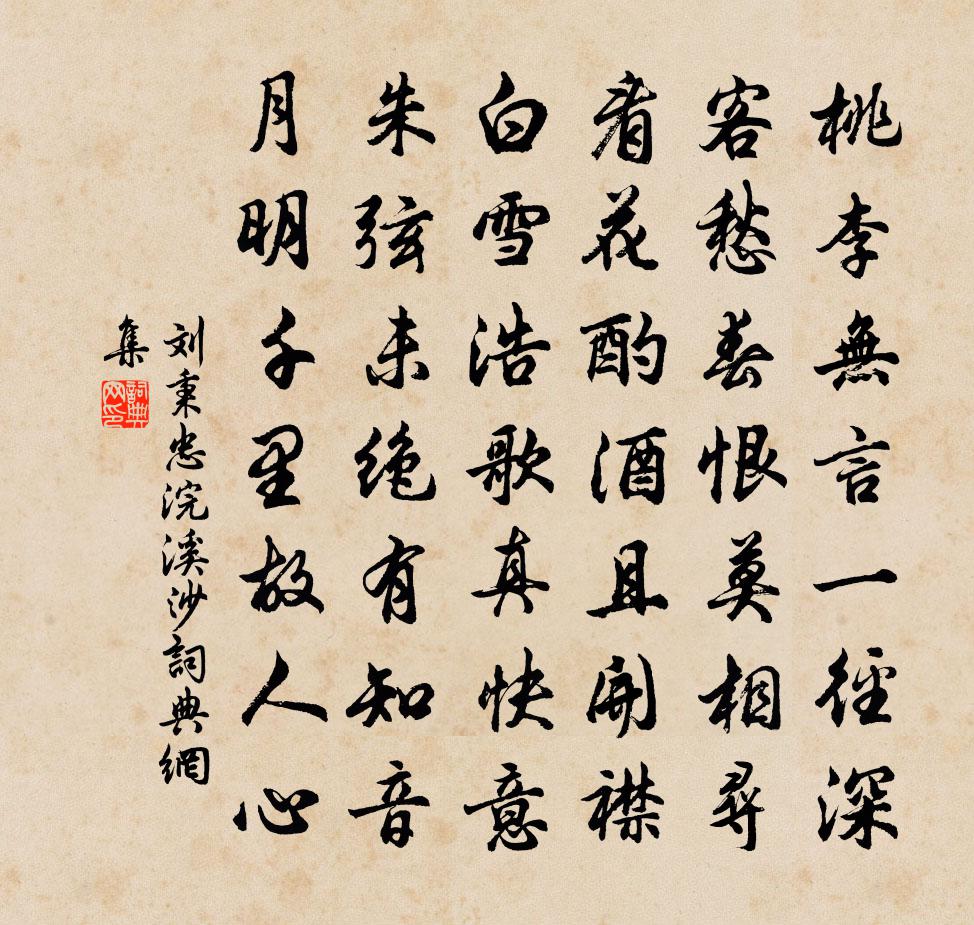 桃李無言一径深
客愁春恨莫相尋
看花酌酒且開襟
白雪浩歌真快意
朱弦未绝有知音
月明千里故人心
刘秉忠浣溪沙詞典網
集
詞典
网印